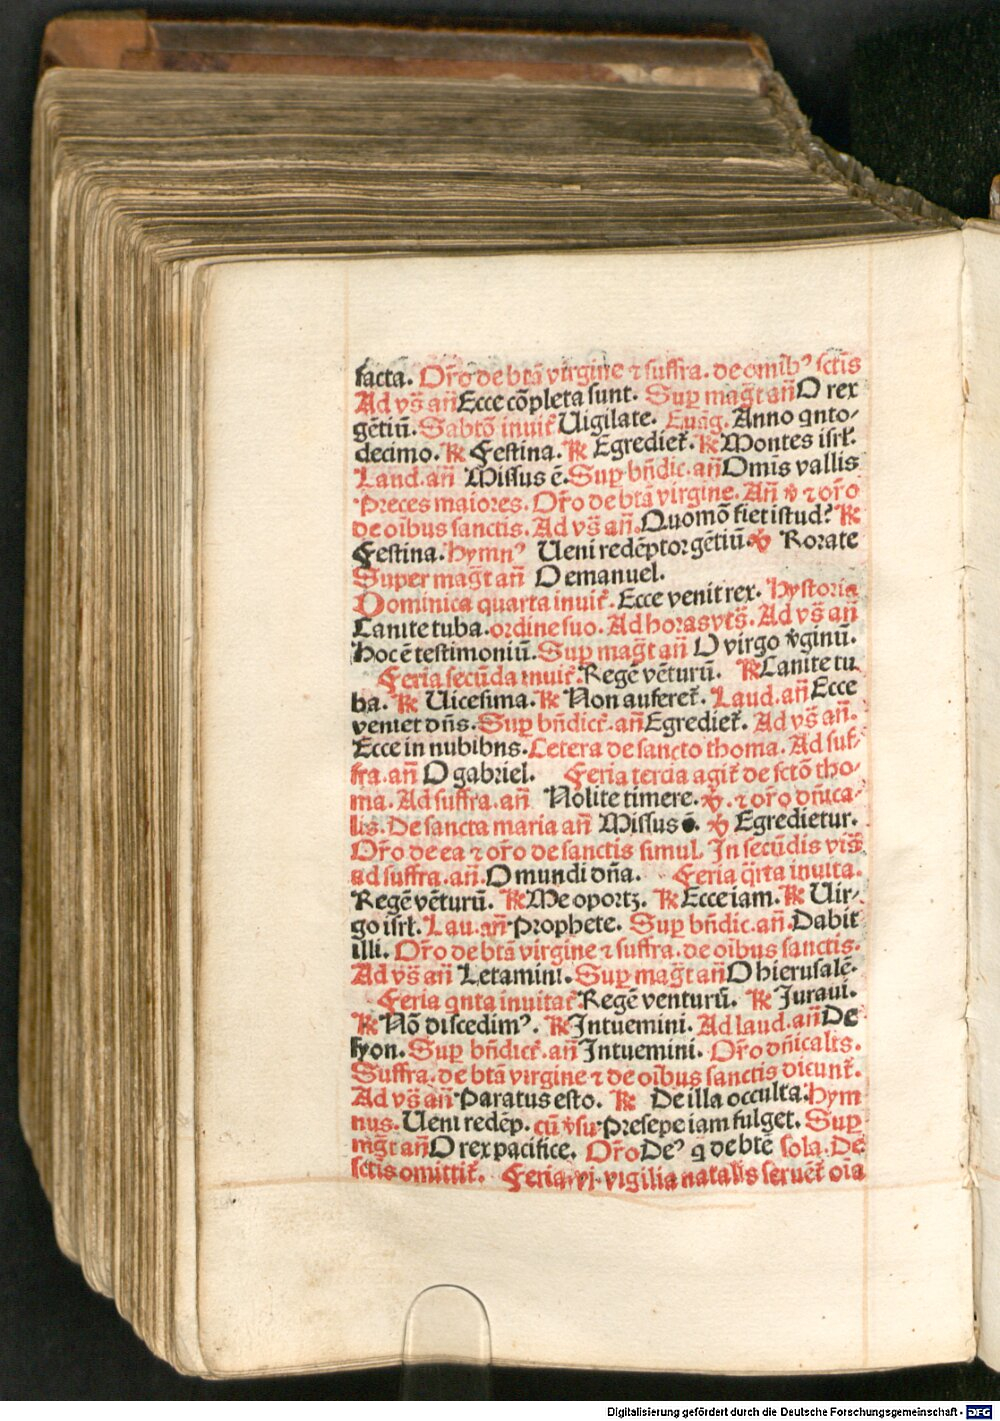 facta. Or̄o de btā virgine ⁊ suffra. de omib⁹ sctīs
Ad vs̄ an̄ Ecce cōpleta sunt. Suꝑ maḡt an̄ O rex
gētiū. Sabtō inuit̄ Uigilate. Euāg. Anno qnto-
decimo. ℟ Festina. ℟ Egrediet̄. ℟ Montes isrl̄.
Laud. an̄ Missus ē. Suꝑ bn̄dic. an̄ Omīs vallis
Preces maiores. Or̄o de btā virgine. An̄ ℣ ⁊ or̄o
de oībus sanctis. Ad vs̄ an̄. Quomō fiet istud? ℟
Festina. Hymn⁹ Ueni redēptor gētiū. ℣ Rorate
Super maḡt an̄ O emanuel.
Dominica quarta inuit̄. Ecce venit rex. Hystoria
Canite tuba. ordine suo. Ad horas vt s̄. Ad vs̄ an̄
Hoc ē testimoniū. Suꝑ maḡt an̄ O virgo v̄ginū.
Feria secūda inuit̄ Regē vētur̄ū. ℟ Canite tu
ba. ℟ Uicesima. ℟ Non auferet̄. Laud. an̄ Ecce
veniet dn̄s. Suꝑ bn̄dict̄. an̄ Egrediet̄. Ad vs̄ an̄.
Ecce in nubibns. Cetera de sancto thoma. Ad suf-
fra. an̄ O gabriel. Feria tercia agit̄ de sctō tho-
ma. Ad suffra. an̄ Nolite timere. ℣. ⁊ or̄o dn̄ica-
lis. De sancta maria an̄ Missus ē. ℣ Egredietur.
Or̄o de ea ⁊ or̄o de sanctis simul. In secūdis vīs
ad suffra. an̄. O mundi dn̄a. Feria q̄rta inuita.
Regē vēturū. ℟ Me oportꝫ. ℟ Ecce iam. ℟ Uir-
go isrl̄. Lau. an̄ Prophete. Suꝑ bn̄dic. an̄. Dabit
illi. Or̄o de btā virgine ⁊ suffra. de oībus sanctis.
Ad vs̄ an̄ Letamini. Suꝑ maḡt an̄ O hierusalē.
Feria qnta inuitat̄ Regē venturū. ℟ Juraui.
℟ Nō discedim⁹. ℟ Intuemini. Ad laud. an̄ De
syon. Suꝑ bn̄dict̄. an̄ Intuemini. Or̄o dn̄icalis.
Suffra. de btā virgine ⁊ de oībus sanctis dicunt̄.
Ad vs̄ an̄ Paratus esto. ℟ De illa occulta. Hym
nus. Ueni redēp. cū v̄su Presepe iam fulget. Suꝑ
mḡt an̄ O rex pacifice. Or̄o De⁹ q de btē sola. De
sctīs omittit̄. Feria .vi. vigilia natalis seruet̄ oīa
Digitalisierung gefördert durch die Deutsche Forschungsgemeinschaft - DFG